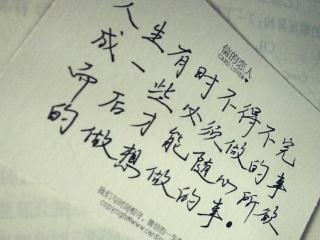 信的恋人
CARD LOVER
人生有时不得不完
成一些必须做的事
而后才能随心所欲
的做想做的事。
我们与时间相守，
copyright©www.card